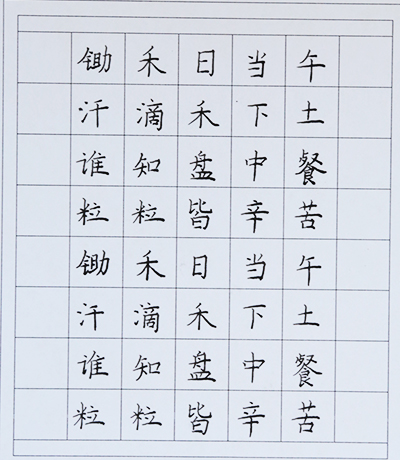 锄禾日当午
汗滴禾下土
谁知盘中餐
粒粒皆辛苦
锄禾日当午
汗滴禾下土
谁知盘中餐
粒粒皆辛苦